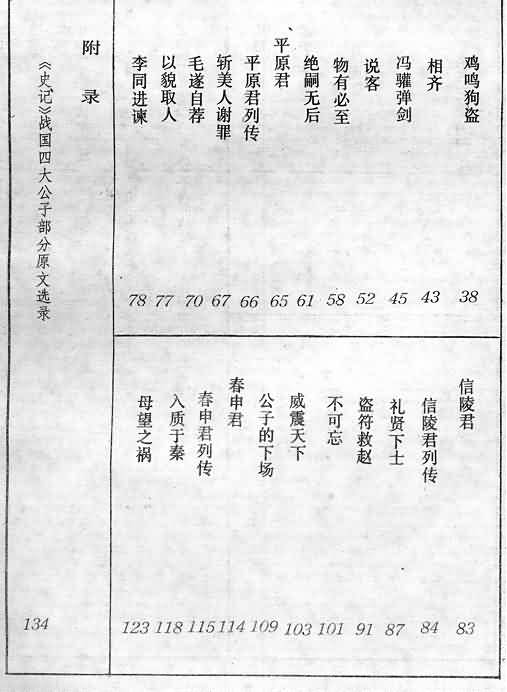 鸡鸣狗盗 38
相齐 43
冯驩弹剑 45
说客 52
物有必至 58
绝嗣无后 61
平原君 65
平原君列传 66
斩美人谢罪 67
毛遂自荐 70
以貌取人 77
李同进谏 78
信陵君 83
信陵君列传 84
礼贤下士 87
盗符救赵 91
不可忘 101
威震天下 103
公子的下场 109
春申君 114
春申君列传 115
入质于秦 118
毋望之祸 123
附录
《史记》战国四大公子部分原文选录 134